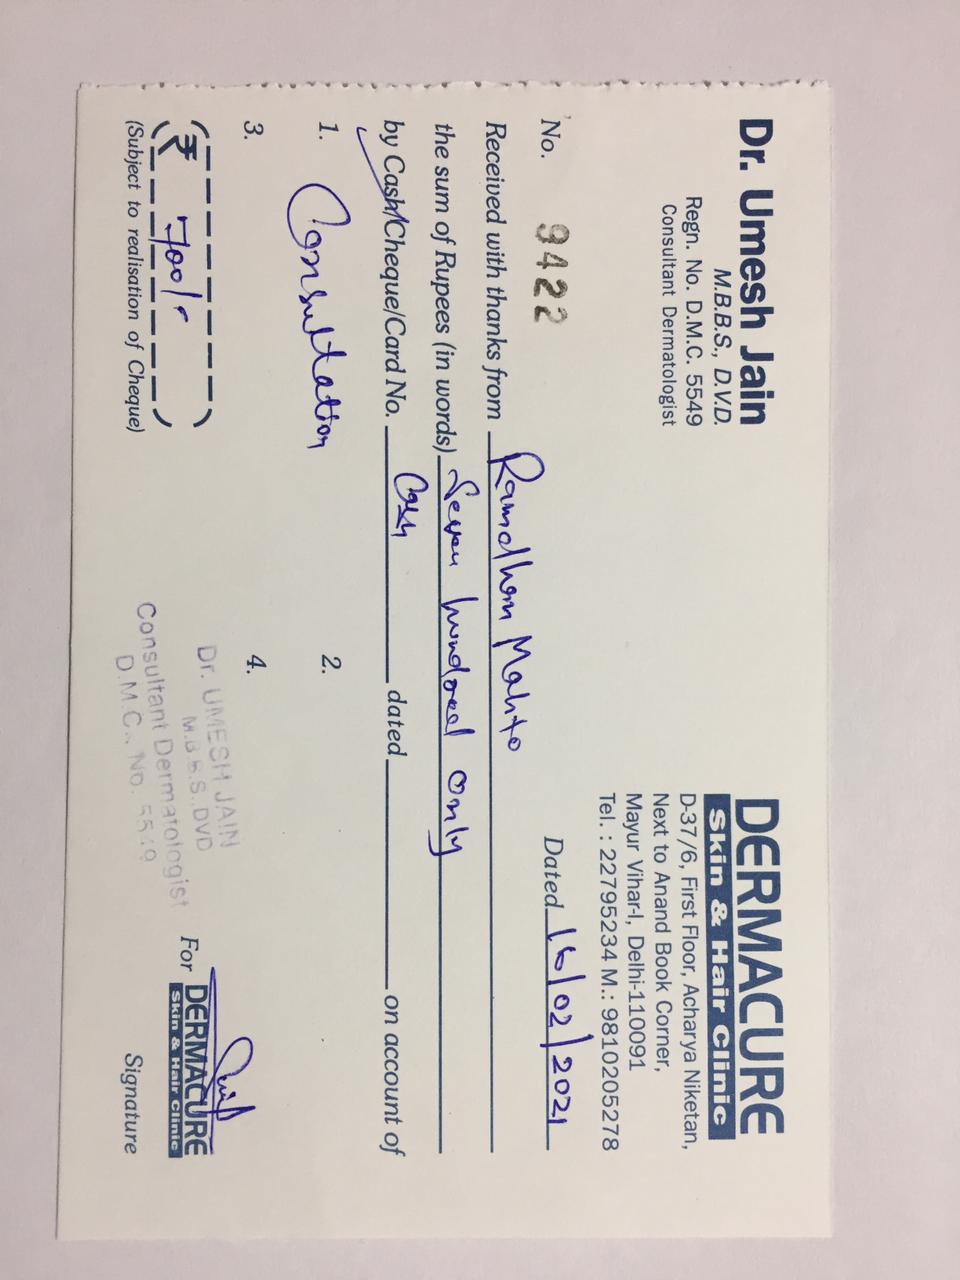 Dr. Umesh Jain
M.B.B.S., D.V.D.
Regn. No. D.M.C. 5549
Consultant Dermatologist
DERMACURE
Skin & Hair Clinic
D-37/6, First Floor, Acharya Niketan,
Next to Anand Book Corner,
Mayur Vihar-I, Delhi-110091
Tel. : 22795234 M.: 9810205278
No. 9422 Dated 16/02/2021
Received with thanks from Ramdhom Mahto
the sum of Rupees (in words) Seven hundred only
by Cash/Cheque/Card No. Cash dated on account of
1. Consultation 2.
3. 4.
₹ 700/-
(Subject to realisation of Cheque)
Dr. UMESH JAIN
M.B.B.S. DVD
Consultant Dermatologist
D.M.C. No. 5549
For DERMACURE
Skin & Hair Clinic
Signature